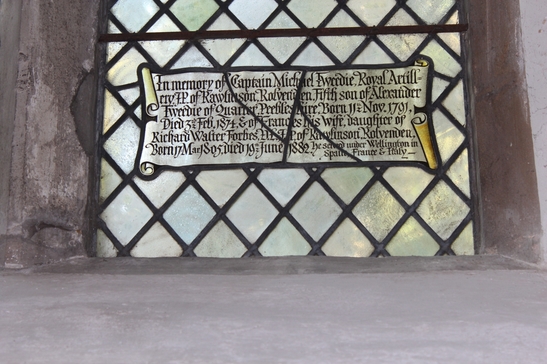 In memory of Captain Michael Tweedie Royal Artill-
ery, J.P. of Rawlinson Rolvenden, Fifth son of Alexander
Tweedie of Quarter Peebles-shire. Born 11th Nov. 1791,
Died Feb. 1874 & of Frances his wife, daughter of
Richard Walter Forbes of Rawlinson Rolvenden.
Born Mar. 1805 died 19th June 1882 he served under Wellington in
Spain, France & Italy